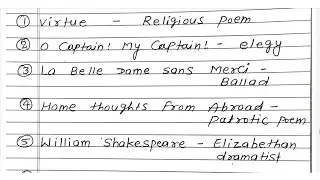 ① Virtue - Religious Poem
② O Captain! My Captain! - elegy
③ La Belle Dame sans Merci -
Ballad
④ Home thoughts from Abroad -
Patrotic poem
⑤ William Shakespeare - Elizabethan
dramatist